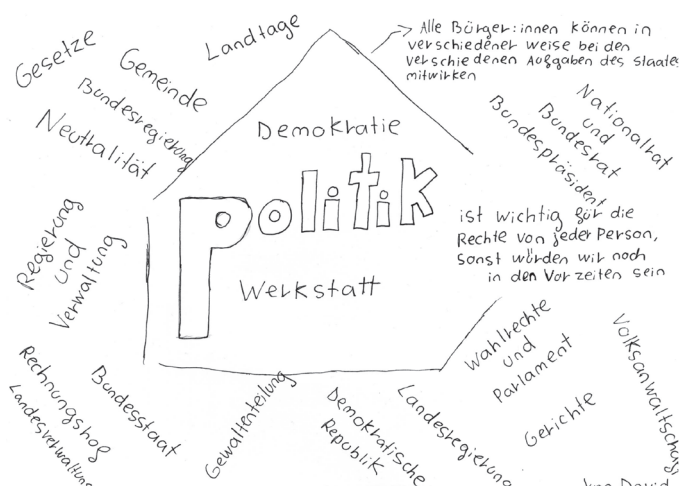 Gesetze
Gemeinde
Landtage
Bundesregierung
Neutralität
Alle Bürger:innen können in
verschiedener weise bei den
verschiedenen Aufgaben des Staates
mitwirken
Nationalrat
und
Bundesrat
Bundespräsident
Demokratie
Politik
Werkstatt
ist wichtig für die
Rechte von jeder Person,
sonst würden wir noch
in den Vorzeiten sein
Regierung
und
Verwaltung
Rechnungshof
Landesverwaltung
Bundesstaat
Gewaltenteilung
Demokratische
Republik
Landesregierung
Wahlrechte
und
Parlament
Gerichte
Volksanwaltschaft
David